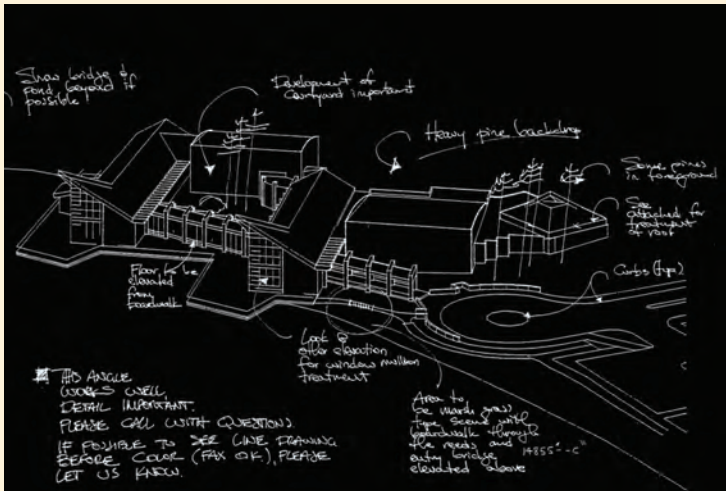 Show bridge &
pond beyond if
possible!
Development of
courtyard important
Heavy pine backdrop
Some pines
in foreground
See
attached for
treatment
of roof
Curbs (typ.)
Floor to be
elevated
from
boardwalk
Look @
other elevation
for window mullion
treatment
Area to
be marsh grass
type scene with
boardwalk through
the reeds and
entry bridge
elevated above
THIS ANGLE
WORKS WELL.
DETAIL IMPORTANT.
PLEASE CALL WITH QUESTIONS.
IF POSSIBLE TO SEE LINE DRAWING
BEFORE COLOR (FAX OK.), PLEASE
LET US KNOW.